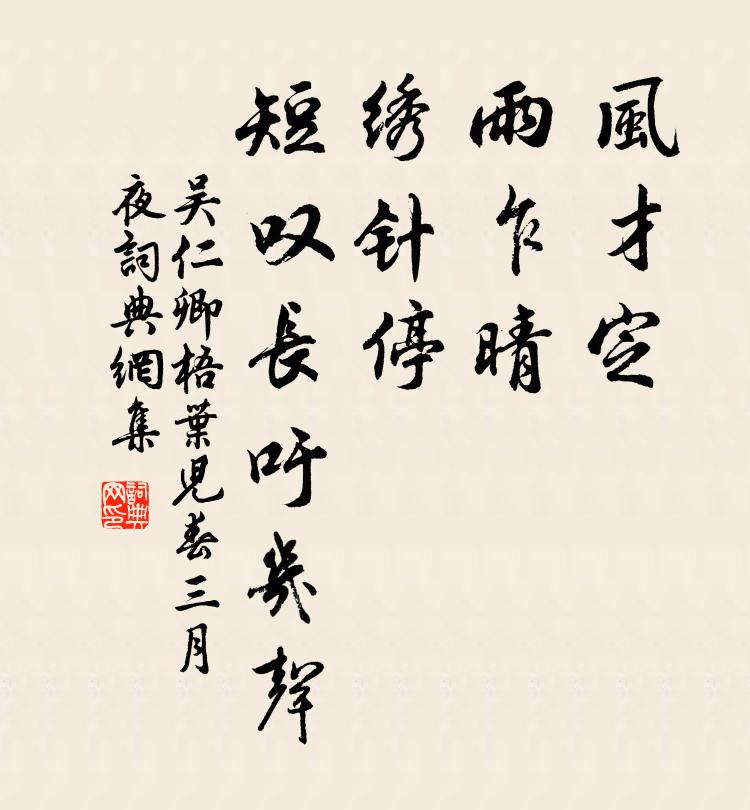 風才定
雨乍晴
绣针停
短叹長吁幾聲
吴仁卿梧葉児春三月
夜詞典網集
詞典网印